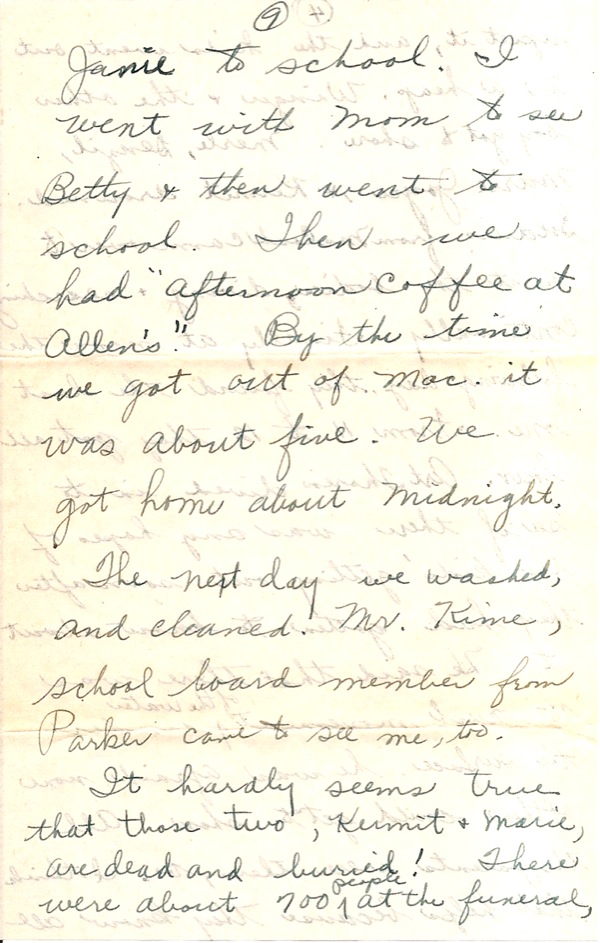 9
Janie to school. I
went with Mom to see
Betty & then went to
school. Then we
had "afternoon coffee at
Allen's." By the time
we got out of Mac. it
was about five. We
got home about midnight.
The next day we washed,
and cleaned. Mr. Kime,
school board member from
Parker came to see me, too.
It hardly seems true
that those two, Kermit & Marie,
are dead and buried! There
were about 700 people at the funeral,